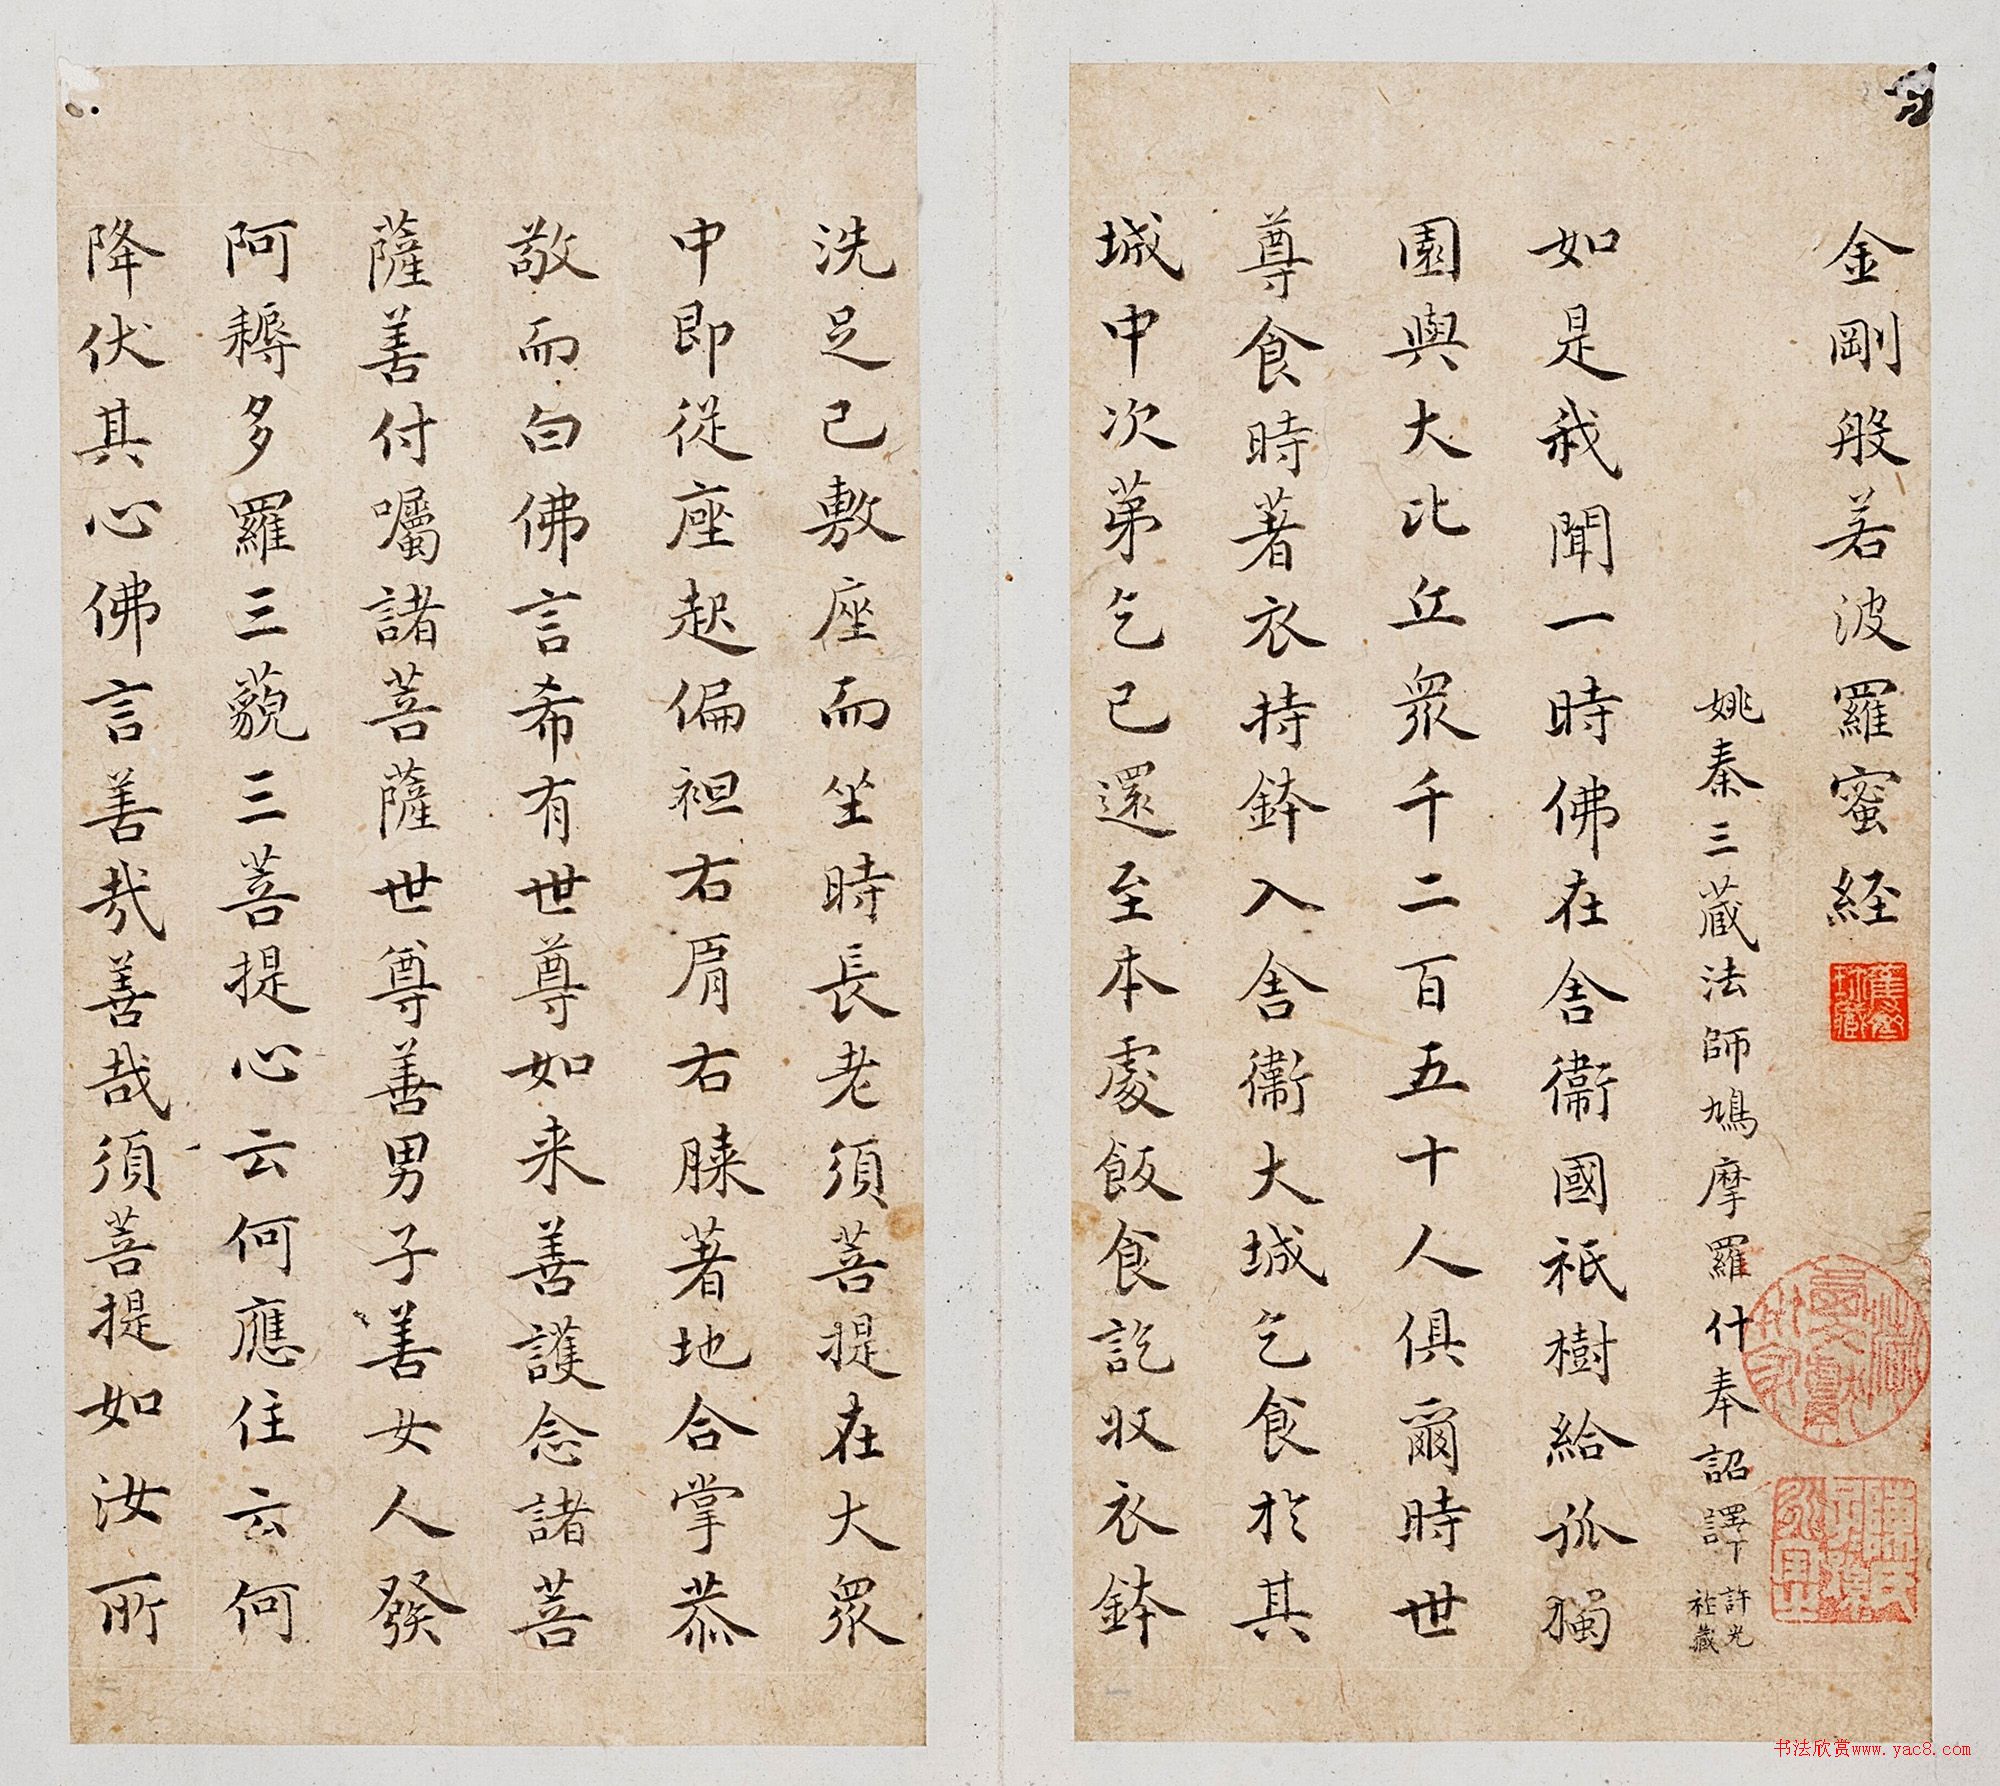 金剛般若波羅蜜経
姚秦三蔵法師鳩摩羅什奉詔譯
許光祚藏
如是我聞一時佛在舎衞國祇樹給孤獨
園與大比丘衆千二百五十人俱爾時世
尊食時著衣持鉢入舎衞大城乞食於其
城中次第乞已還至本處飯食訖收衣鉢
洗足已敷座而坐時長老須菩提在大衆
中即從座起偏袒右肩右膝著地合掌恭
敬而白佛言希有世尊如来善護念諸菩
薩善付囑諸菩薩世尊善男子善女人發
阿耨多羅三藐三菩提心云何應住云何
降伏其心佛言善哉善哉須菩提如汝所
书法欣赏www.yac8.com